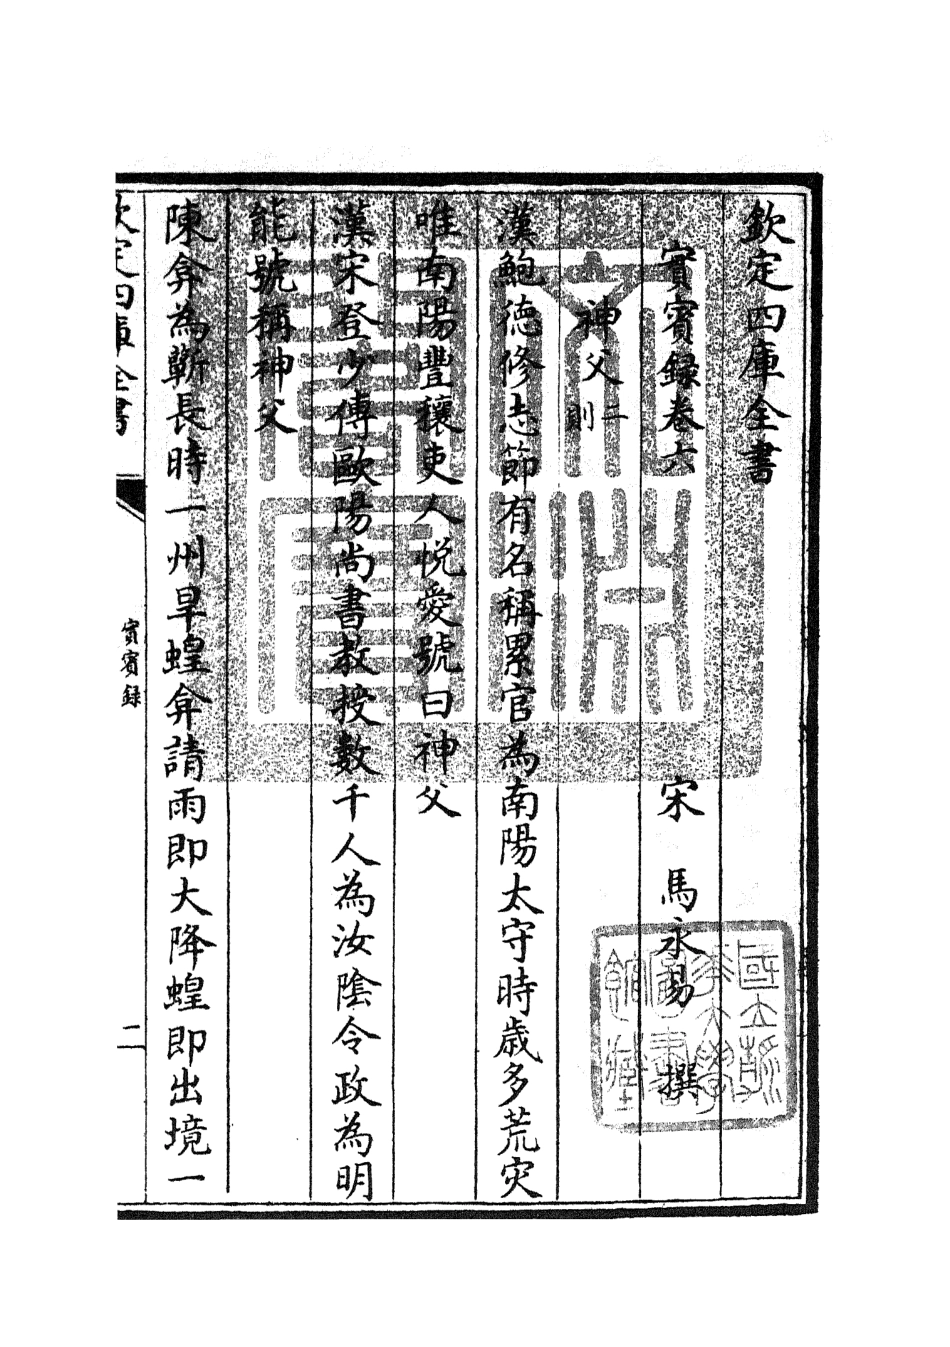 欽定四庫全書
實賓録卷六 宋 馬永易 撰
神父二則
漢鮑德修志節有名稱累官為南陽太守時歳多荒灾
唯南陽豐穰吏人悦愛號曰神父
漢宋登少傳歐陽尚書教授數千人為汝陰令政為明
能號稱神父
陳弇為蘄長時一州旱蝗弇請雨即大降蝗即出境一
欽定四庫全書
實賓録
二
文淵閣寳
國立浙江大學圖書館藏